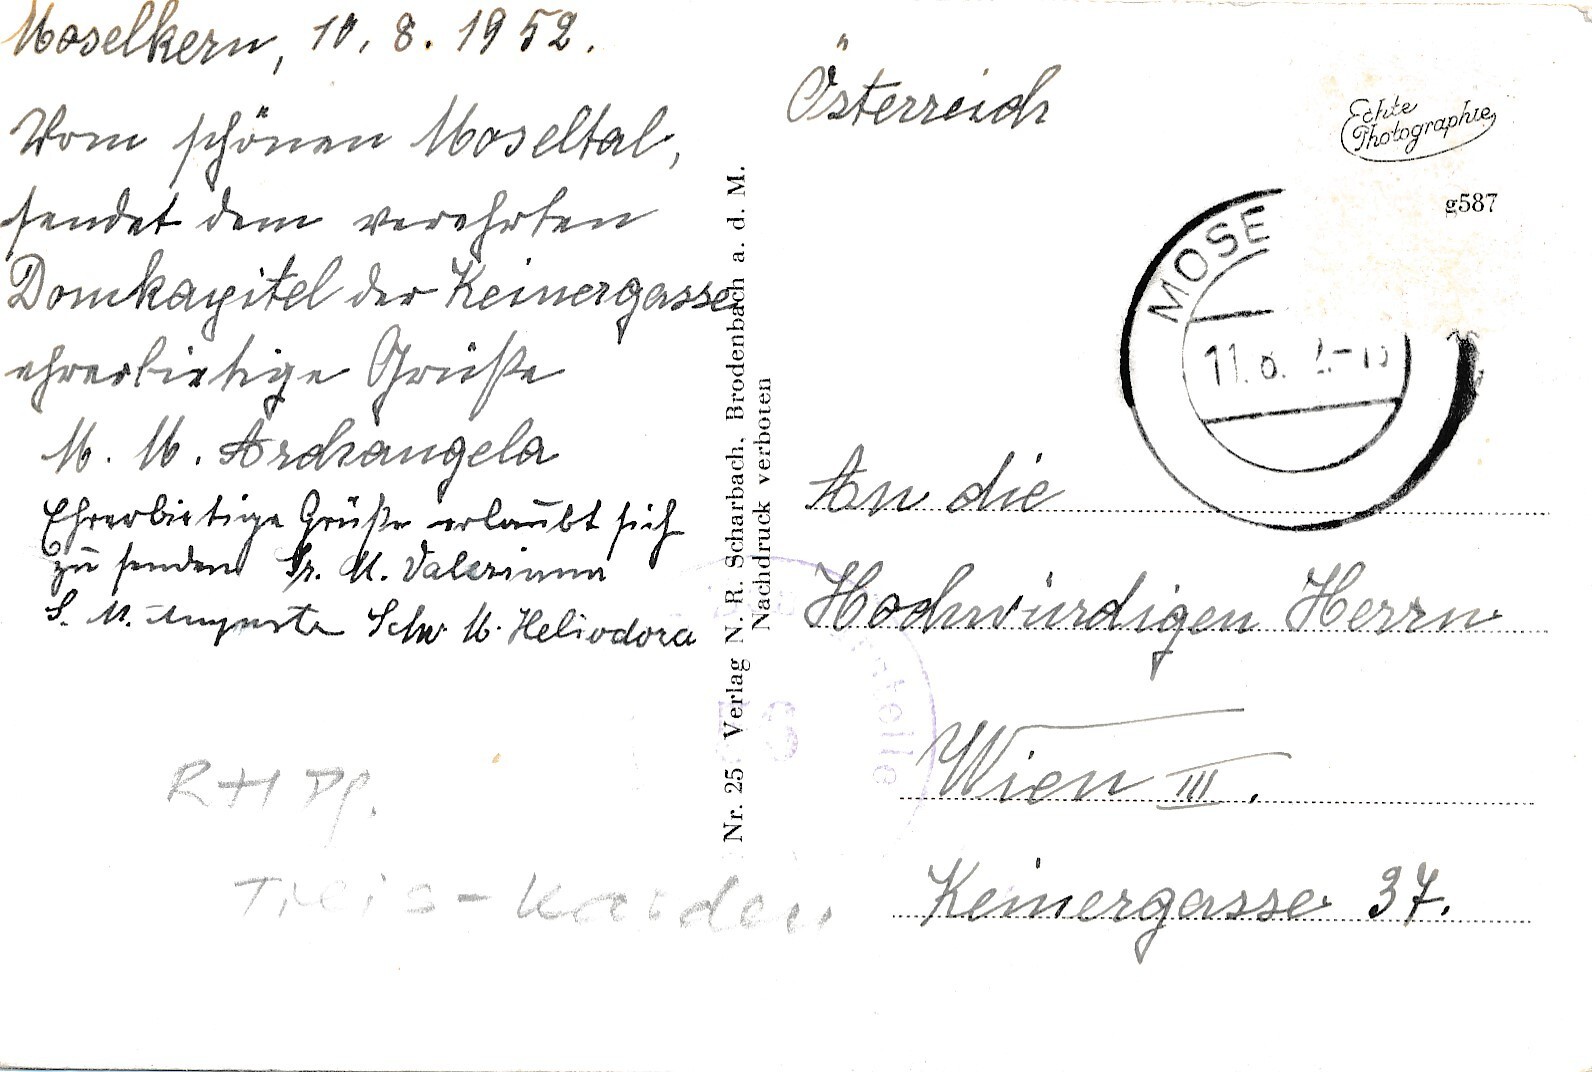 Moselkern, 10. 8. 1952.
Vom schönen Moseltal,
sendet dem verehrten
Domkapitel der Keinergasse
ehrerbietige Grüße
M. M. Archangela
Ehrerbietige Grüße erlaubt sich
zu senden Sr. M. Valerianna
S. M. Augusta Schw. M. Heliodora
RHPf.
Treis-Karden
Nr. 25 Verlag N. R. Scharbach, Brodenbach a. d. M.
Nachdruck verboten
Österreich
Echte
Photographie
g587
MOSE
11. 8.
An die
Hochwürdigen Herrn
Wien III.
Keinergasse 37.